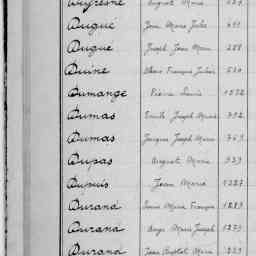 Dufresne August Marie
Dugué Jean Marie Jules 641
Dugue Joseph Jean Marie 288
Duine François Julien 520
Dumange Pierre Louis 1572
Dumas Emile Joseph Marie 392
Dumas Jacques Joseph Marie 769
Dupas August Marie 939
Dupuis Jean Marie 1227
Durand Louis Marie François 1289
Durand Ange Marie Joseph 1273
Durand Jean Baptist Marie